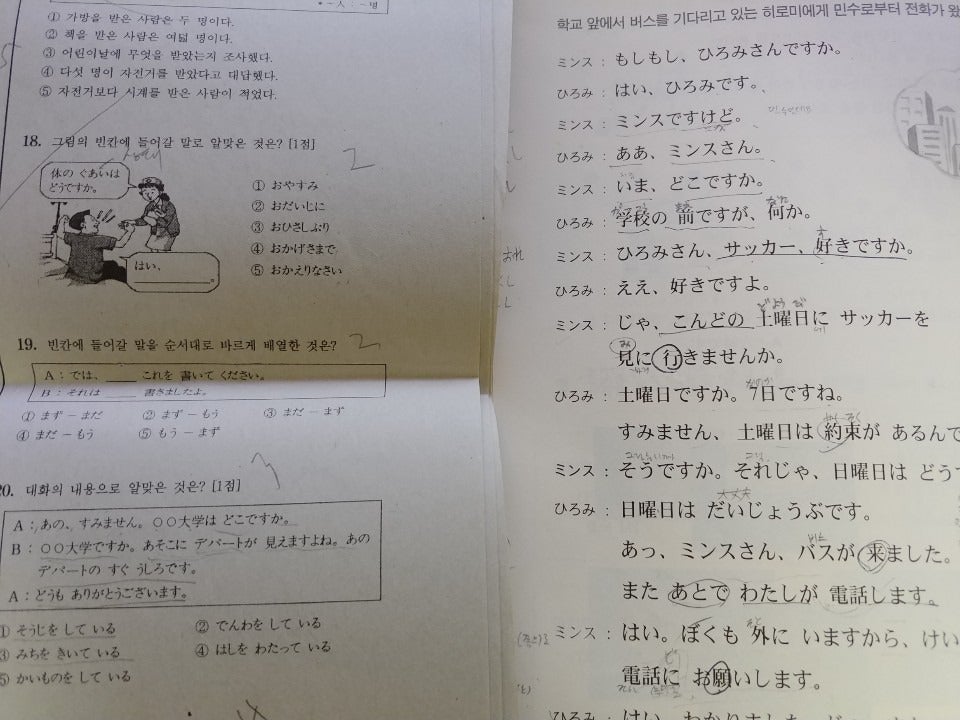 *~人 : ~명
① 가방을 받은 사람은 두 명이다.
② 책을 받은 사람은 여덟 명이다.
③ 어린이날에 무엇을 받았는지 조사했다.
④ 다섯 명이 자전거를 받았다고 대답했다.
⑤ 자전거보다 시계를 받은 사람이 적었다.
18. 그림의 빈칸에 들어갈 말로 알맞은 것은? [1점]
体の ぐあいは
どうですか。
はい、
① おやすみ
② おだいじに
③ おひさしぶり
④ おかげさまで
⑤ おかえりなさい
19. 빈칸에 들어갈 말을 순서대로 바르게 배열한 것은?
A : では、____ これを 書いて ください。
B : それは ____ 書きましたよ。
① まず － まだ ② まず － もう ③ まだ － まず
④ まだ － もう ⑤ もう － まず
20. 대화의 내용으로 알맞은 것은? [1점]
A : あの、すみません。○○大学は どこですか。
B : ○○大学ですか。あそこに デパートが 見えますよね。あの
デパートの すぐ うしろです。
A : どうも ありがとうございます。
① そうじを して いる ② でんわを して いる
③ みちを きいて いる ④ はしを わたって いる
⑤ かいものを して いる
학교 앞에서 버스를 기다리고 있는 히로미에게 민수로부터 전화가 왔
ミンス : もしもし、ひろみさんですか。
ひろみ : はい、ひろみです。
ミンス : ミンスですけど。
ひろみ : ああ、ミンスさん。
ミンス : いま、どこですか。
ひろみ : 学校の 前ですが、何か。
ミンス : ひろみさん、サッカー、好きですか。
ひろみ : ええ、好きですよ。
ミンス : じゃ、こんどの 土曜日に サッカーを
見に 行きませんか。
ひろみ : 土曜日ですか。7日ですね。
すみません、土曜日は 約束が あるんで
ミンス : そうですか。それじゃ、日曜日は どう
ひろみ : 日曜日は だいじょうぶです。
大丈夫
あっ、ミンスさん、バスが 来ました。
また あとで わたしが 電話します。
ミンス : はい。ぼくも 外に いますから、けい
電話に お願いします。
ひろみ : はい、わかりました。